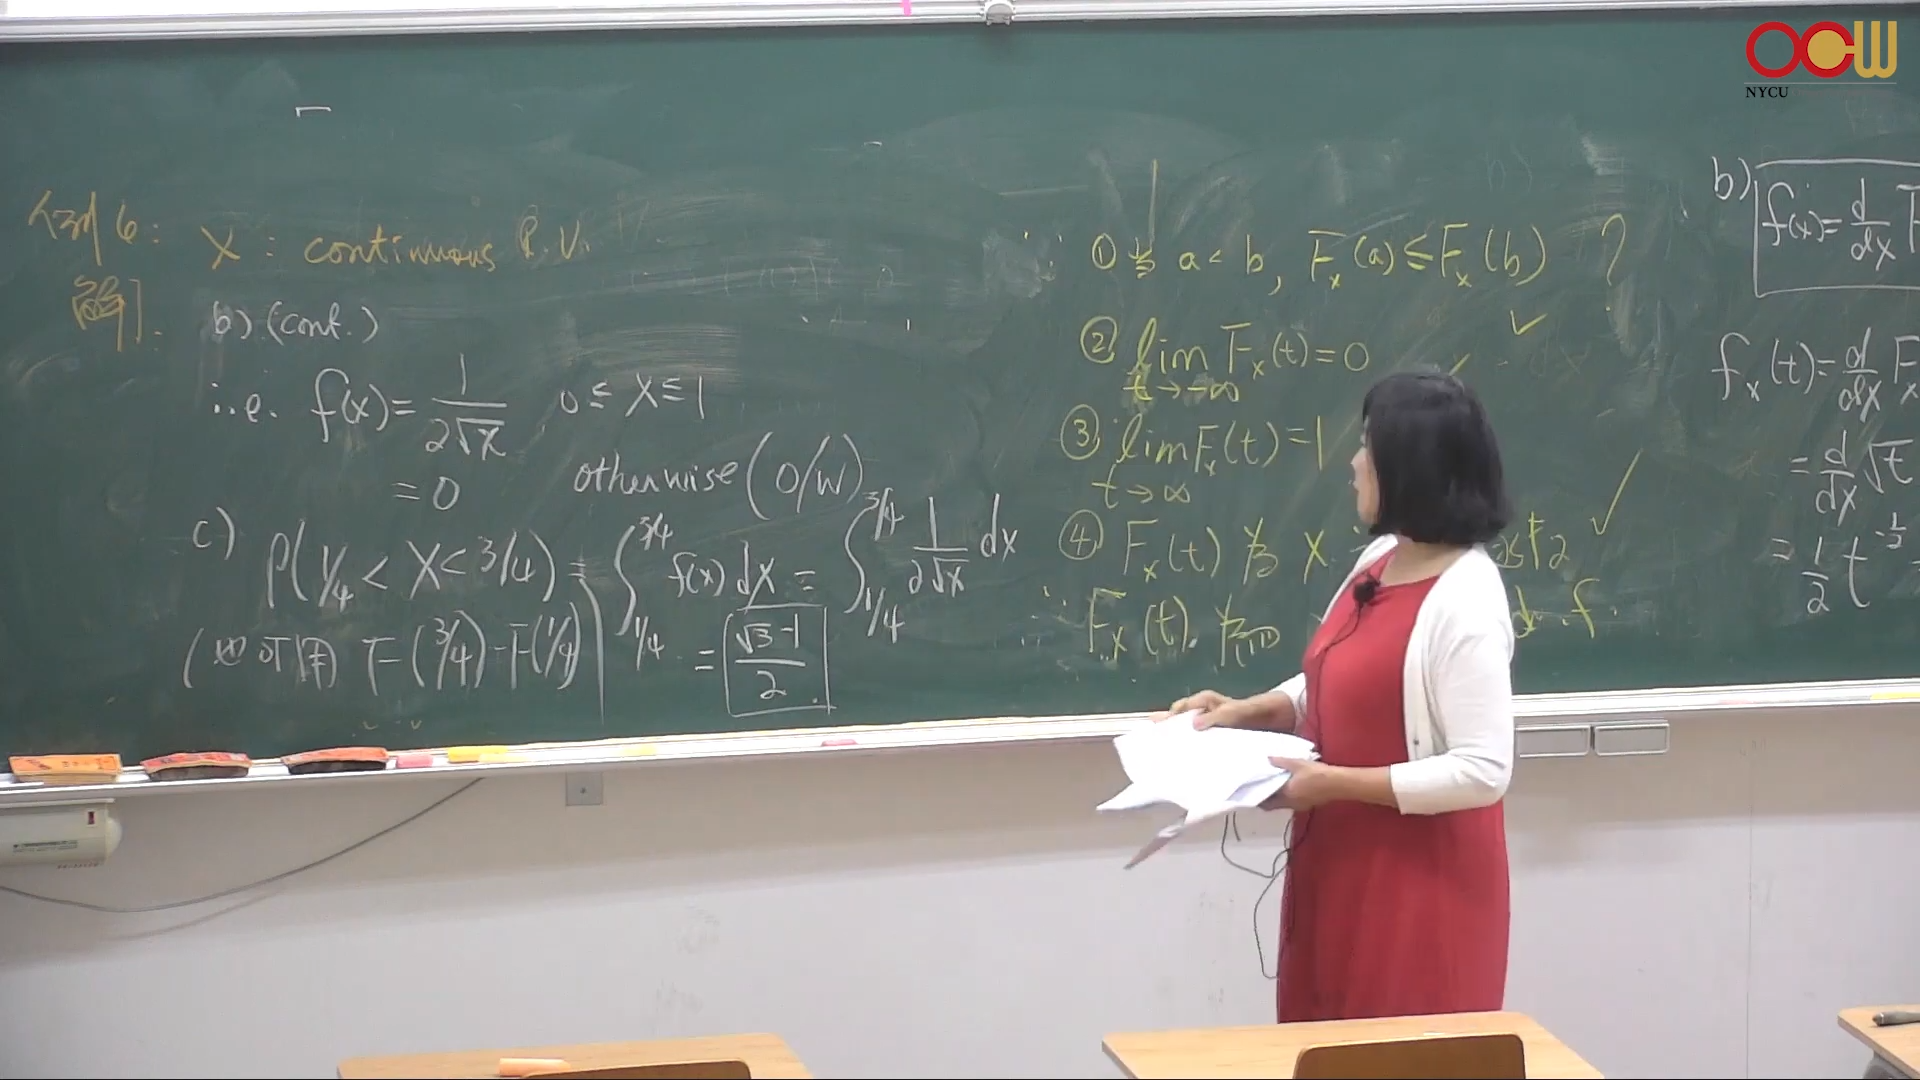 OCW
NYCU
例6: X : continuous R.V.
解].
b) (cont.)
i.e. f(x) = 1/(2√x)  0 ≤ X ≤ 1
= 0  otherwise (O/W)
c) P(1/4 < X < 3/4) = ∫_{1/4}^{3/4} f(x) dx = ∫_{1/4}^{3/4} 1/(2√x) dx
(也可用 F(3/4) - F(1/4))  = (√3-1)/2
∵ ① 当 a < b, F_x(a) ≤ F_x(b) ?
② lim_{t→-∞} F_x(t) = 0 ✓
③ lim_{t→∞} F_x(t) = 1
④ F_x(t) 为 X ✓
∴ F_x(t) 为 d.f.
b) f(x) = d/dx F
f_x(t) = d/dx F_x
= d/dx √t
= 1/2 t^{-1/2}